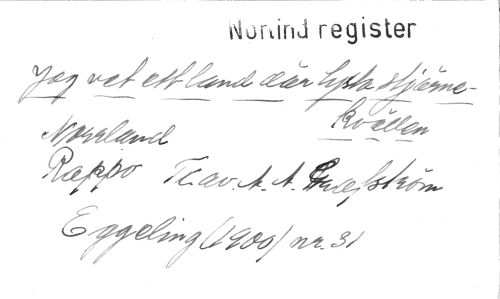 Nortind register
Jag vet ett land där lysta stjärne-
kvällen
Norrland
Rappo T.av. A. A.
Eggeling (1900) nr. 31